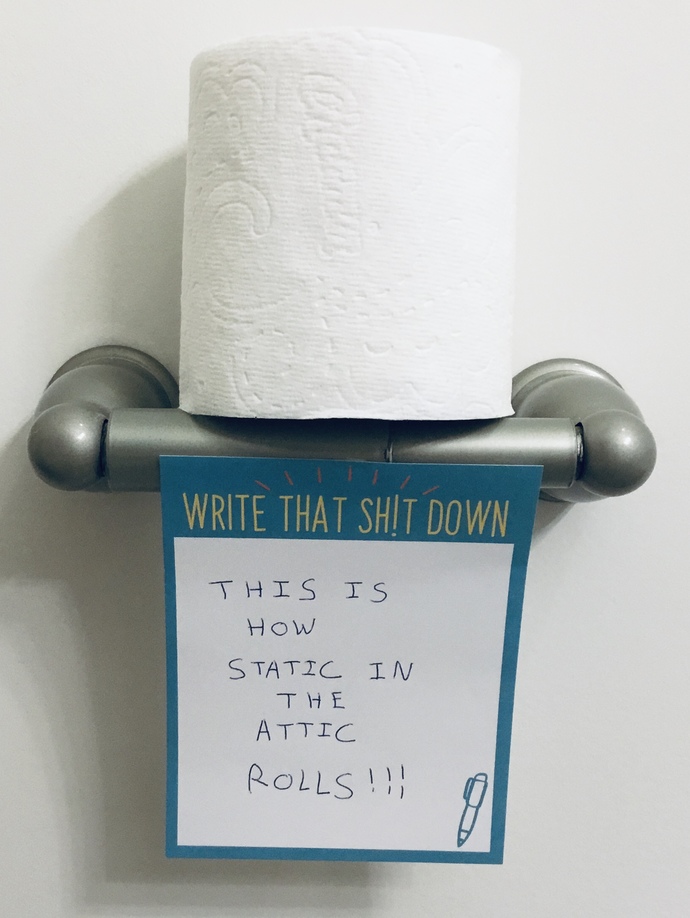 Charmin
WRITE THAT SH!T DOWN
THIS IS
HOW
STATIC IN
THE
ATTIC
ROLLS!!!